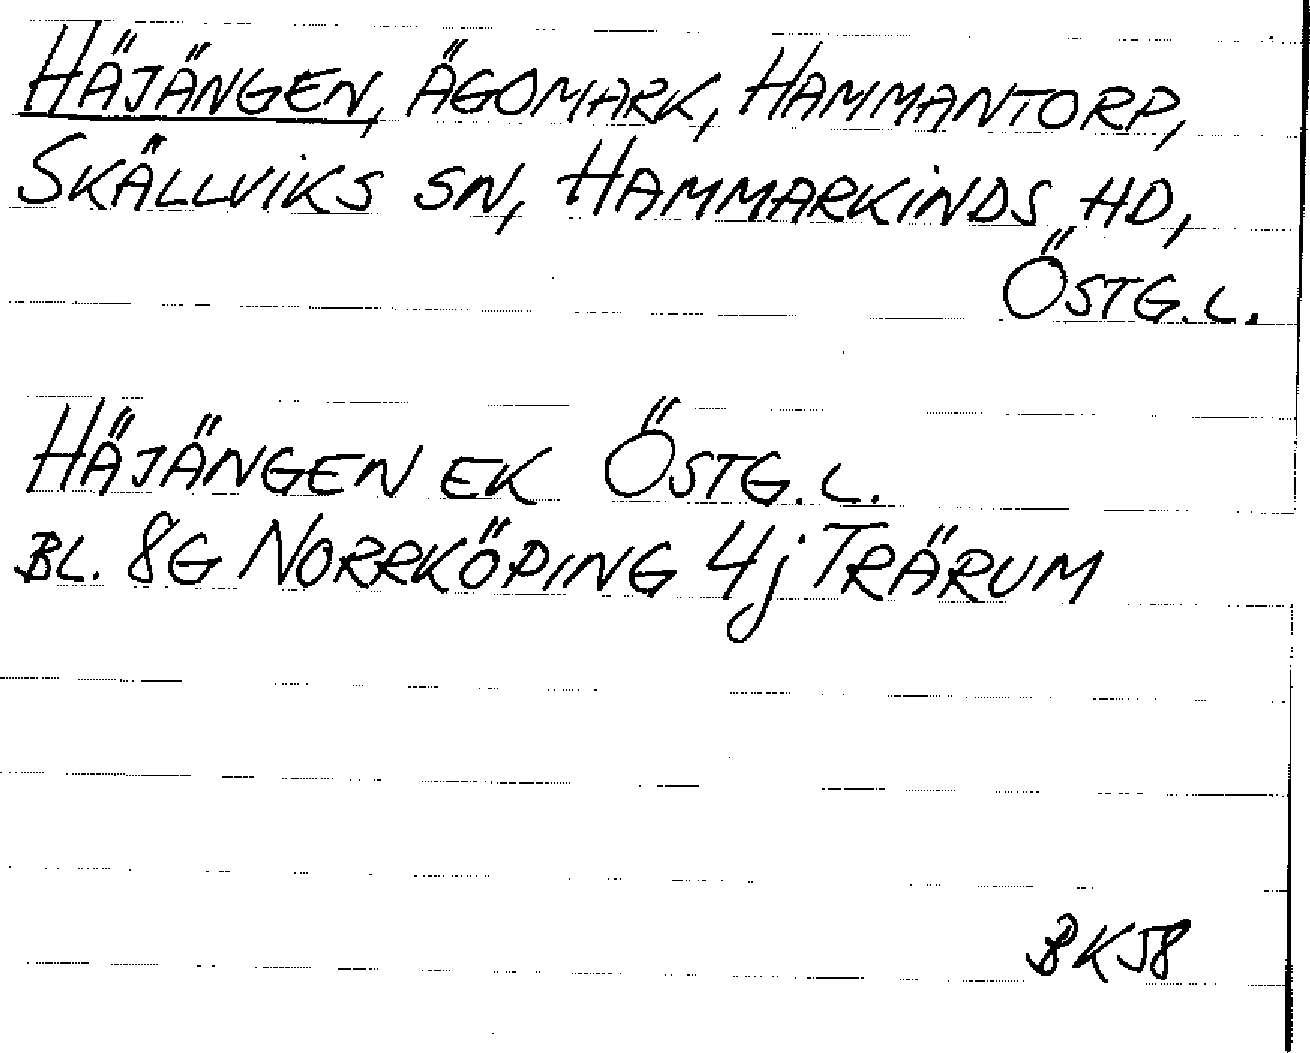 HÄJÄNGEN, ÄGOMARK, HAMMANTORP,
SKÄLLVIKS SN, HAMMARKINDS HD,
ÖSTG.L.
HÄJÄNGEN EK ÖSTG.L.
BL. 8G NORRKÖPING 4j TRÄRUM
BK58